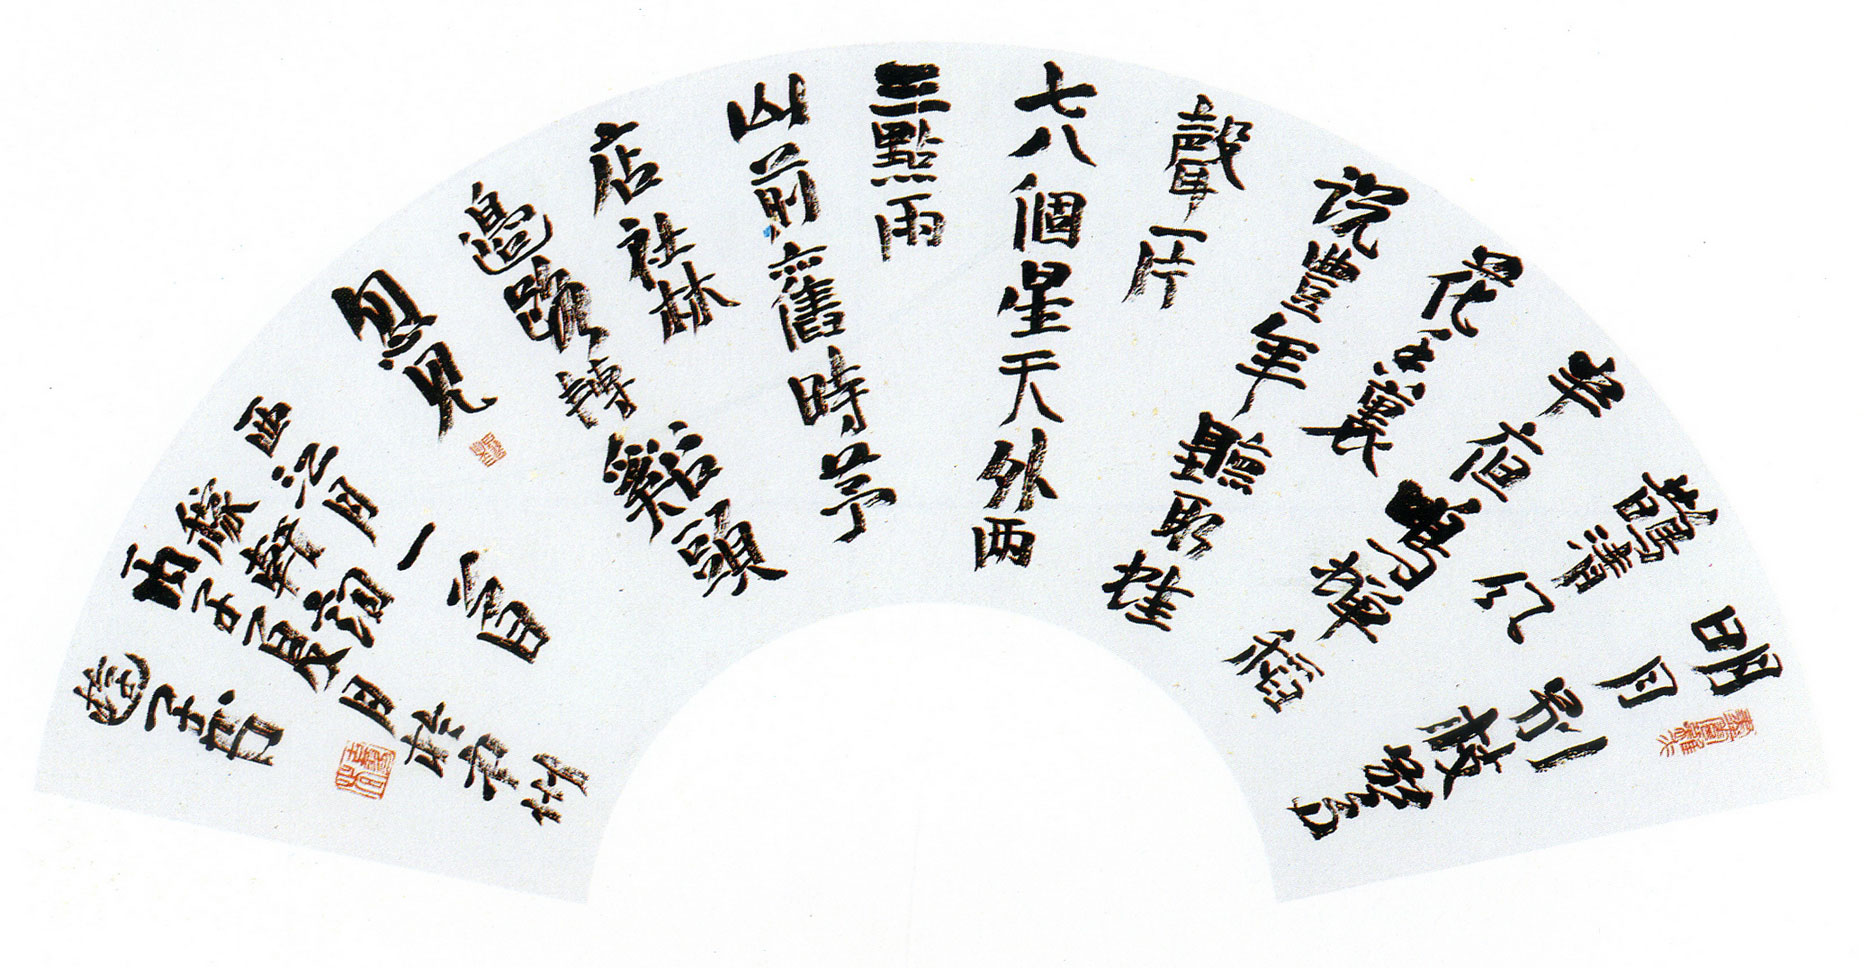 明月別枝驚
鵲清風
半夜鳴蟬稻
花香裏
說豐年聽取蛙
聲一片
七八個星天外两
三點雨
山前舊時茅
店社林
邊路轉谿頭
忽見
西江月一首
稼軒詞
丙子夏月於州